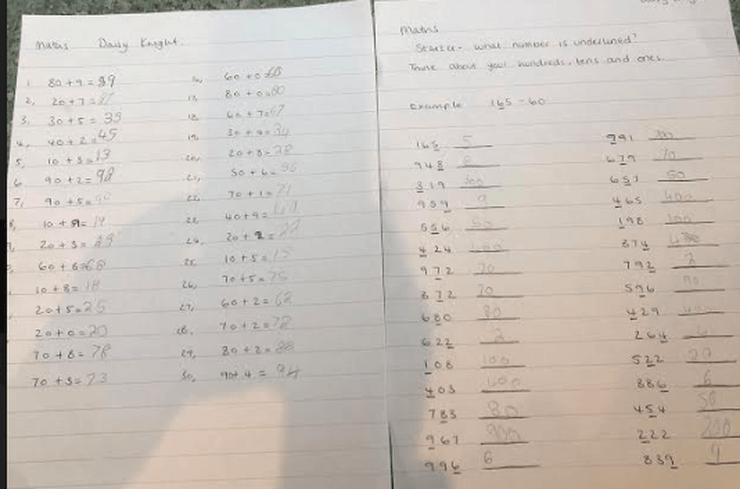 Maths Daisy Knight.
1 80 + 9 = 89
2, 20 + 7 = 27
3, 30 + 5 = 35
4, 40 + 2 = 45
5, 10 + 3 = 13
6 90 + 2 = 92
7, 90 + 5 =
10 + 9 = 19
20 + 3 =
60 + 8 = 68
10 + 8 = 18
20 + 5 = 25
20 + 0 = 20
70 + 8 = 78
70 + 3 = 73
60 + 0 = 60
80 + 0 = 80
60 + 7 = 67
30 + 4 = 34
20 + 8 = 28
50 + 6 = 56
22 70 + 1 = 71
40 + 9 =
24, 20 + 2 = 22
25 10 + 5 = 15
26, 70 + 5 = 75
27, 60 + 2 = 62
28, 70 + 2 = 72
29, 80 + 2 =
30, 90 + 4 = 94
Maths
Starter - what number is underlined?
Think about your hundreds, tens and ones.
Example 165 - 60
165 5
948 8
319 300
959 9
556 50
424 400
972 70
872 70
680 80
622 2
108 100
403 400
783 80
967 900
996 6
791
679 70
651 50
465 400
198 100
874
792 2
596 90
429 400
264
522 20
886 6
454 50
222 200
839 9